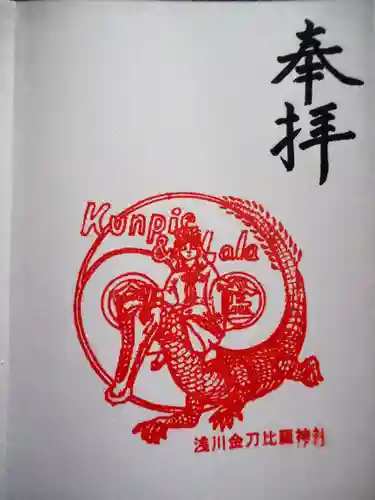 奉拝
Kunpie
& Lala
金
浅川金刀比羅神社